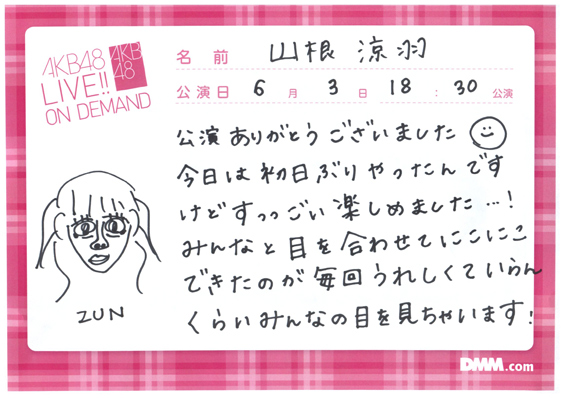 AKB48
LIVE!!
ON DEMAND
AKB
48
名前 山根 涼羽
公演日 6月 3日 18:30 公演
公演ありがとうございました
今日は初日ぶりやったんです
けどすっっごい楽しめました…!
みんなと目を合わせてにこにこ
できたのが毎回うれしくていらん
くらいみんなの目を見ちゃいます!
ZUN
DMM.com